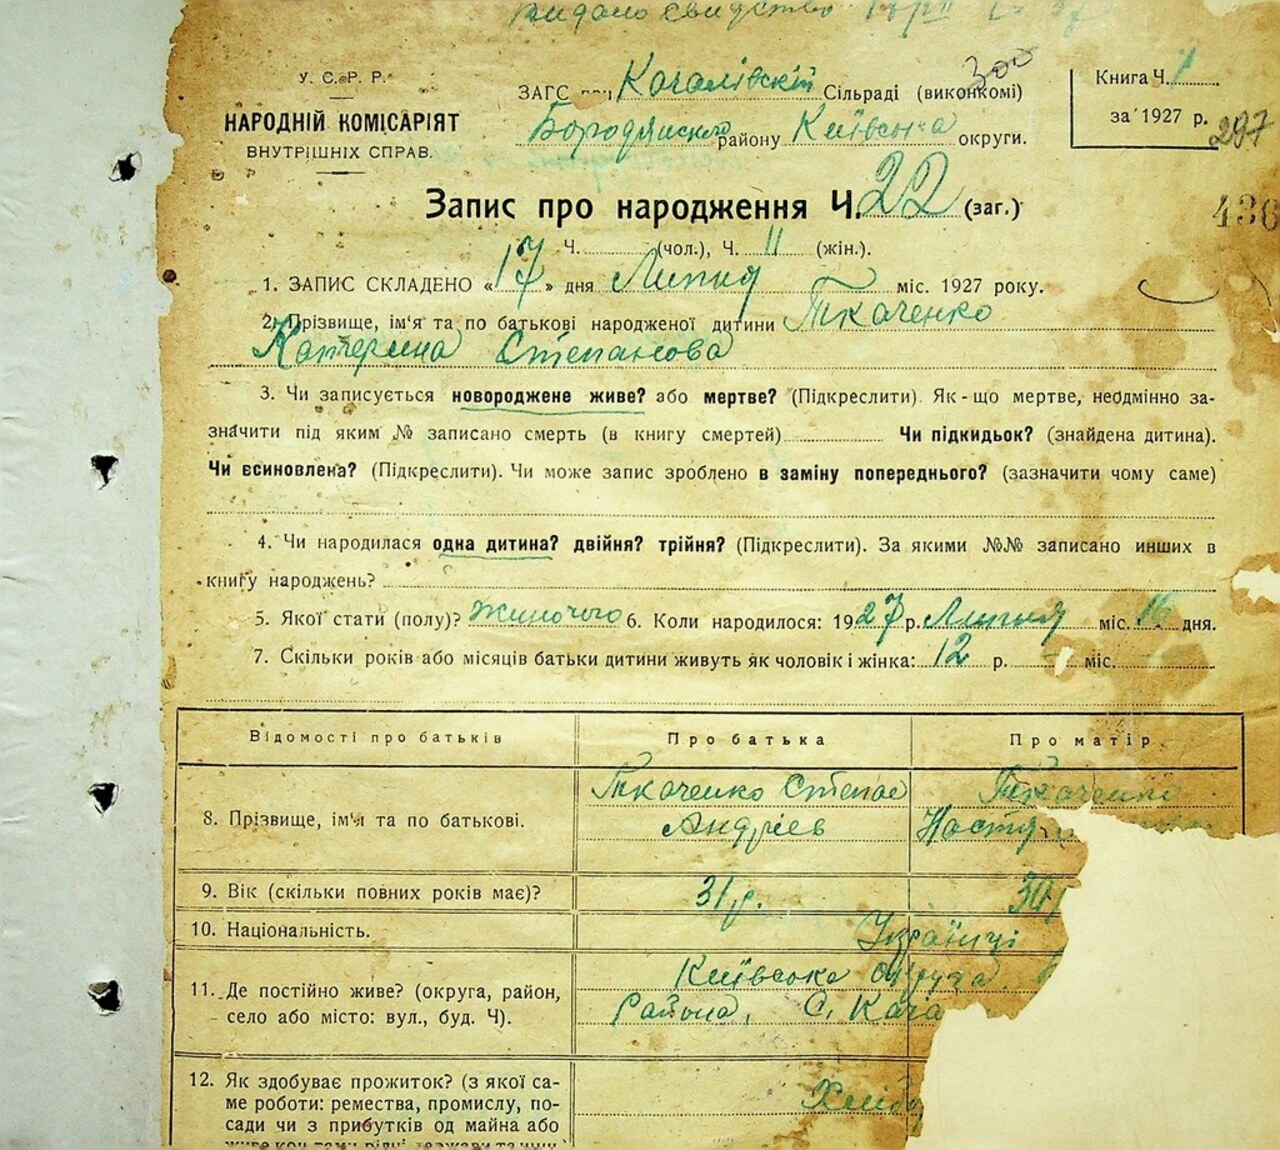 видано свидетство
У. С. Р. Р.
НАРОДНІЙ КОМІСАРІЯТ
ВНУТРІШНІХ СПРАВ.
ЗАГС при Качалівскій Сільраді (виконкомі)
300
Бородянського району Київська округи.
Книга Ч. 1
за 1927 р.
297
436
Запис про народження Ч. 22 (заг.)
Ч. (чол.), Ч. 11 (жін.).
1. ЗАПИС СКЛАДЕНО «17» дня Липня міс. 1927 року.
2. Прізвище, ім'я та по батькові народженої дитини Ткаченко
Катерина Степанова
3. Чи записується новороджене живе? або мертве? (Підкреслити). Як-що мертве, неодмінно за-
значити під яким № записано смерть (в книгу смертей) Чи підкидьок? (знайдена дитина).
Чи всиновлена? (Підкреслити). Чи може запис зроблено в заміну попереднього? (зазначити чому саме)
4. Чи народилася одна дитина? двійня? трійня? (Підкреслити). За якими №№ записано инших в
книгу народжень?
5. Якої стати (полу)? Жиночого 6. Коли народилося: 1927 р. Липня міс. 16 дня.
7. Скільки років або місяців батьки дитини живуть як чоловік і жінка: 12 р. міс.
Відомості про батьків Про батька Про матір
8. Прізвище, ім'я та по батькові. Ткаченко Степан Андріев Ткаченко Настя
9. Вік (скільки повних років має)? 31 р. 30 р
10. Національність. Українці
11. Де постійно живе? (округа, район, Київська округа
село або місто: вул., буд. Ч). Района, С. Кача
12. Як здобуває прожиток? (з якої са-
ме роботи: ремества, промислу, по- Хлібо
сади чи з прибутків од майна або